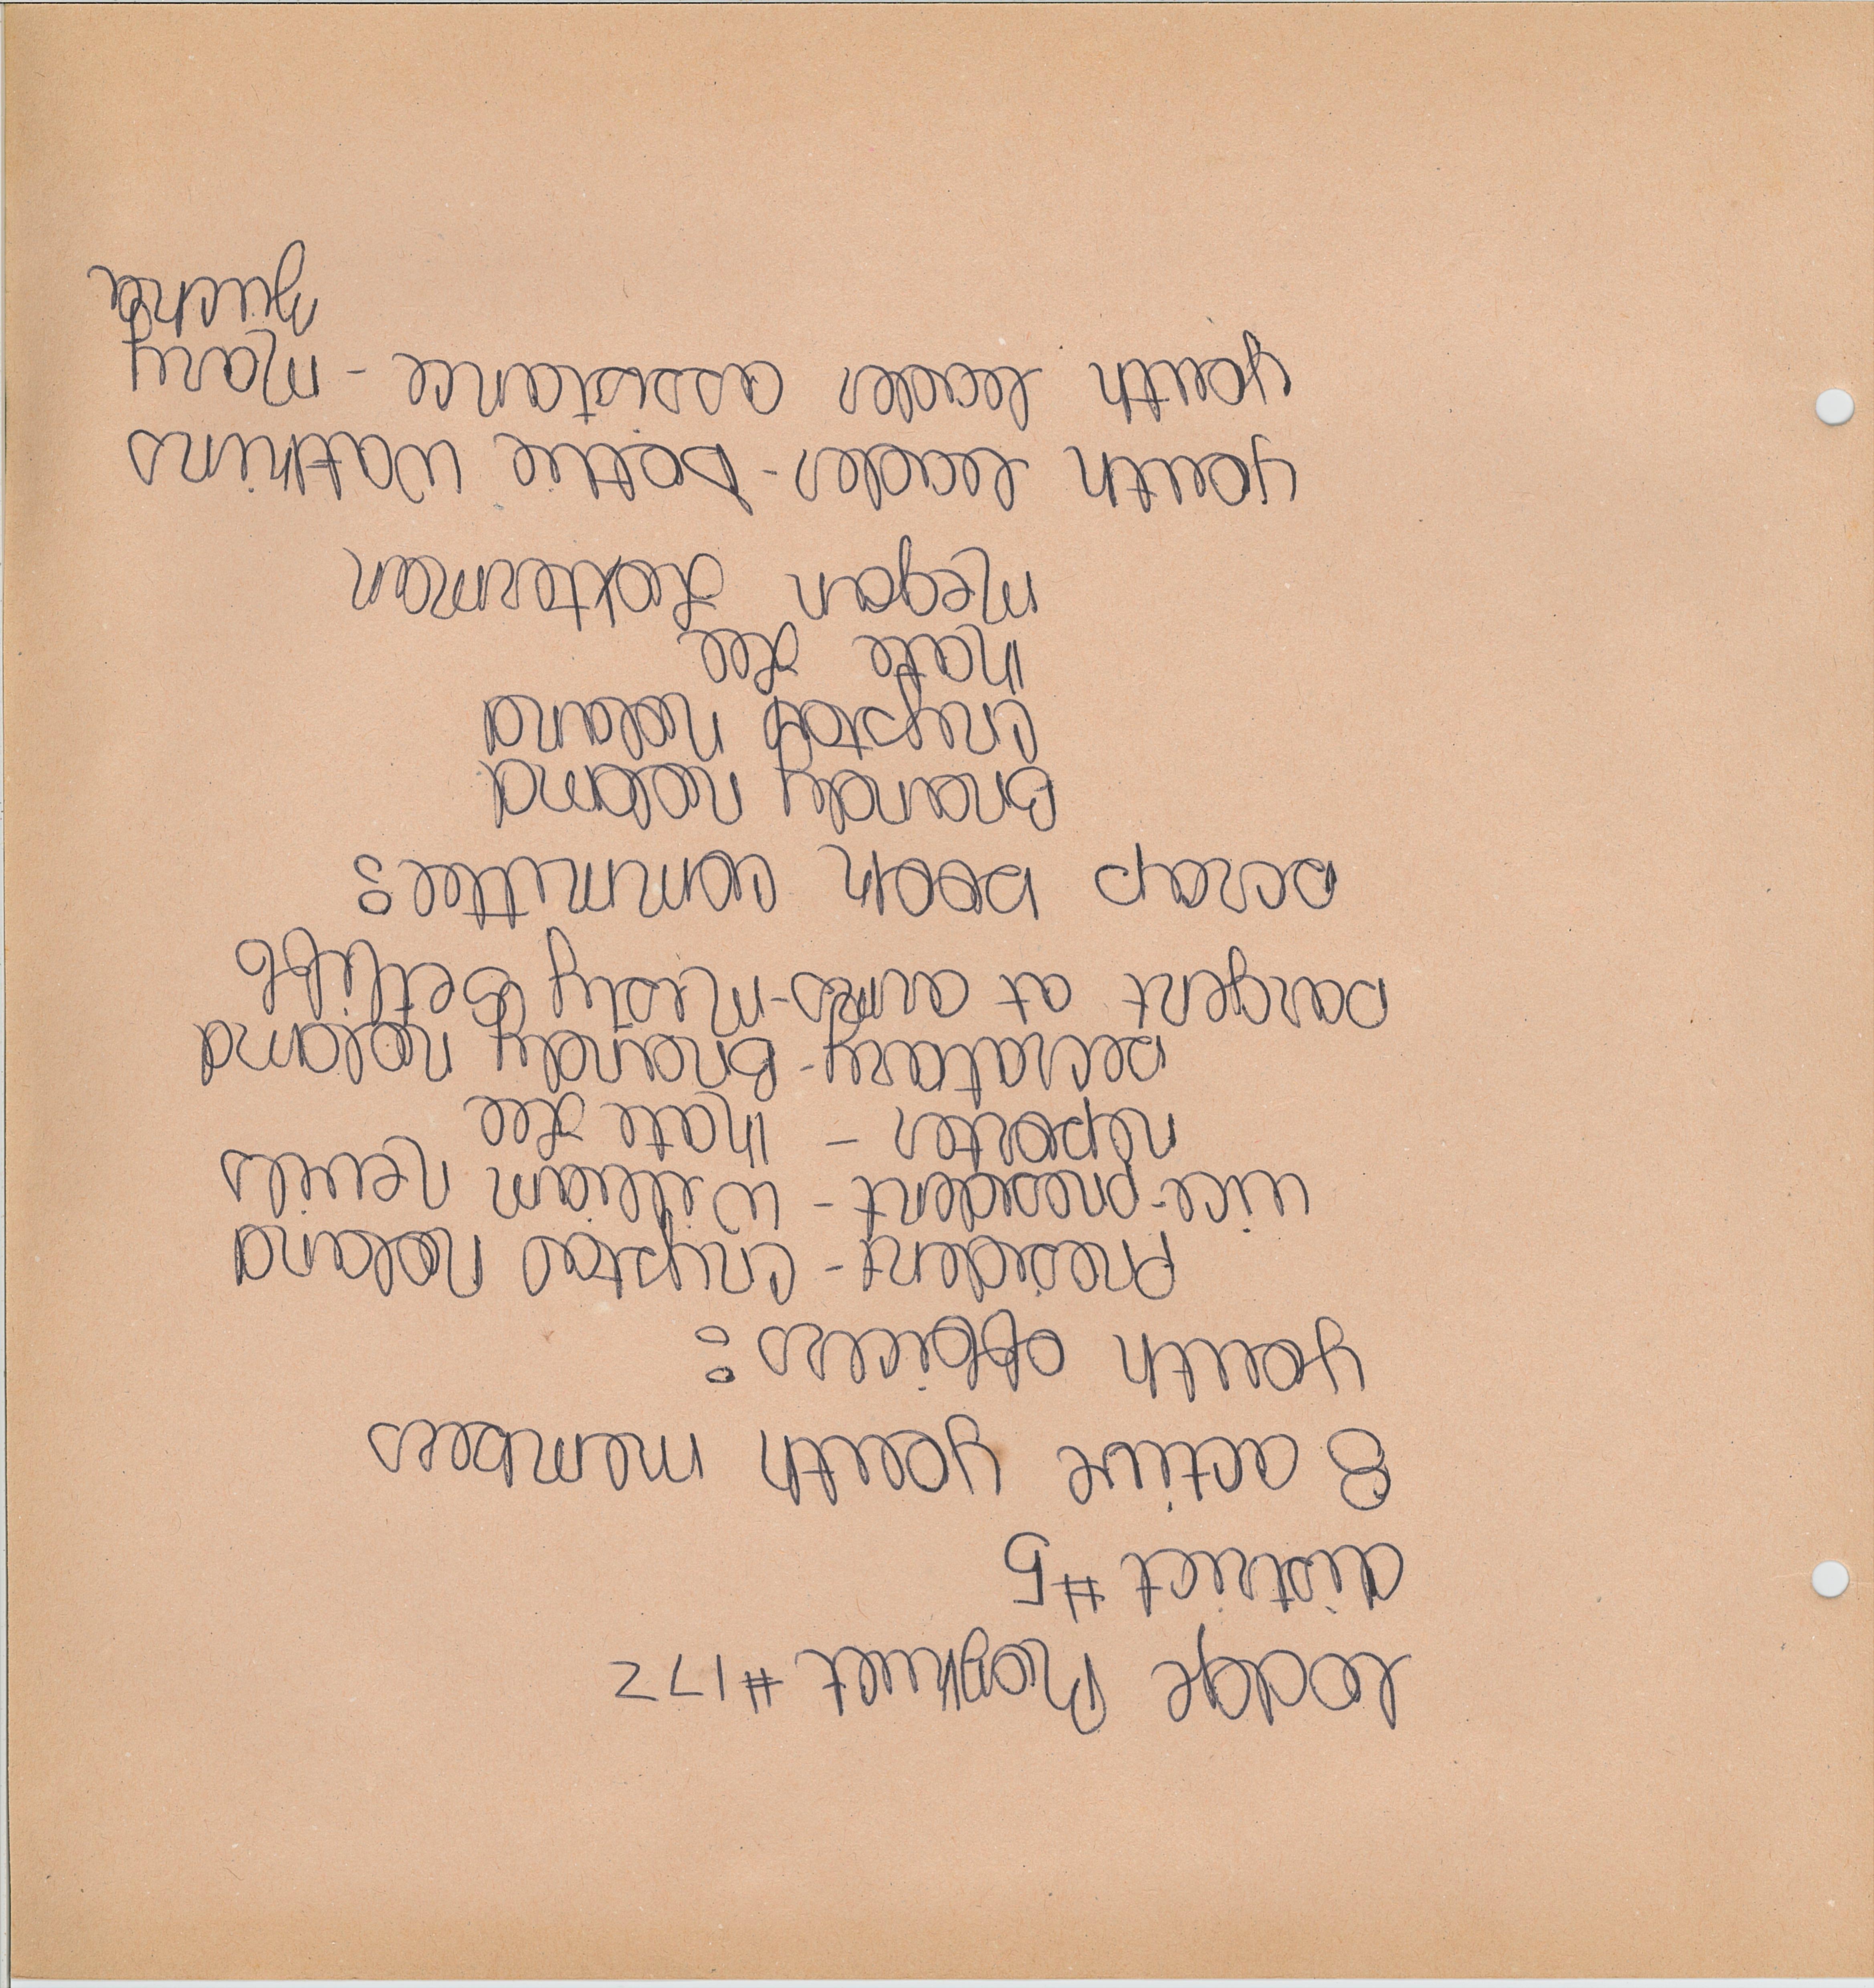 Lodge Prophuct #172
district #5
8 active youth members
youth officers:
President - Crystal noland
vice-presedent - william nellis
reporter - Nate Lee
secratary - Brandy noland
sargent at arms - misty
scrap book committee:
Brandy noland
Crystal noland
Nate Lee
megan Loxterman
youth leader - Dottie Watkins
youth leader assistance - Mary